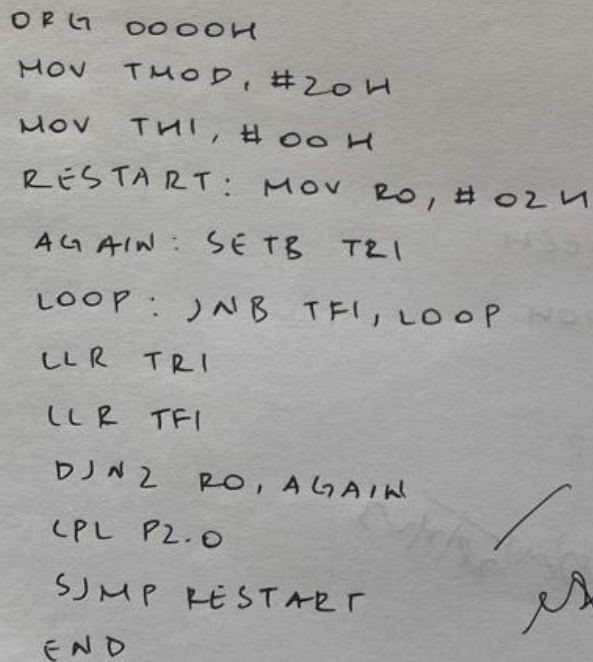 ORG 0000H
MOV TMOD, #20H
MOV TH1, #00H
RESTART: MOV R0, #02H
AGAIN: SETB TR1
LOOP: JNB TF1, LOOP
CLR TR1
CLR TF1
DJNZ R0, AGAIN
CPL P2.0
SJMP RESTART
END